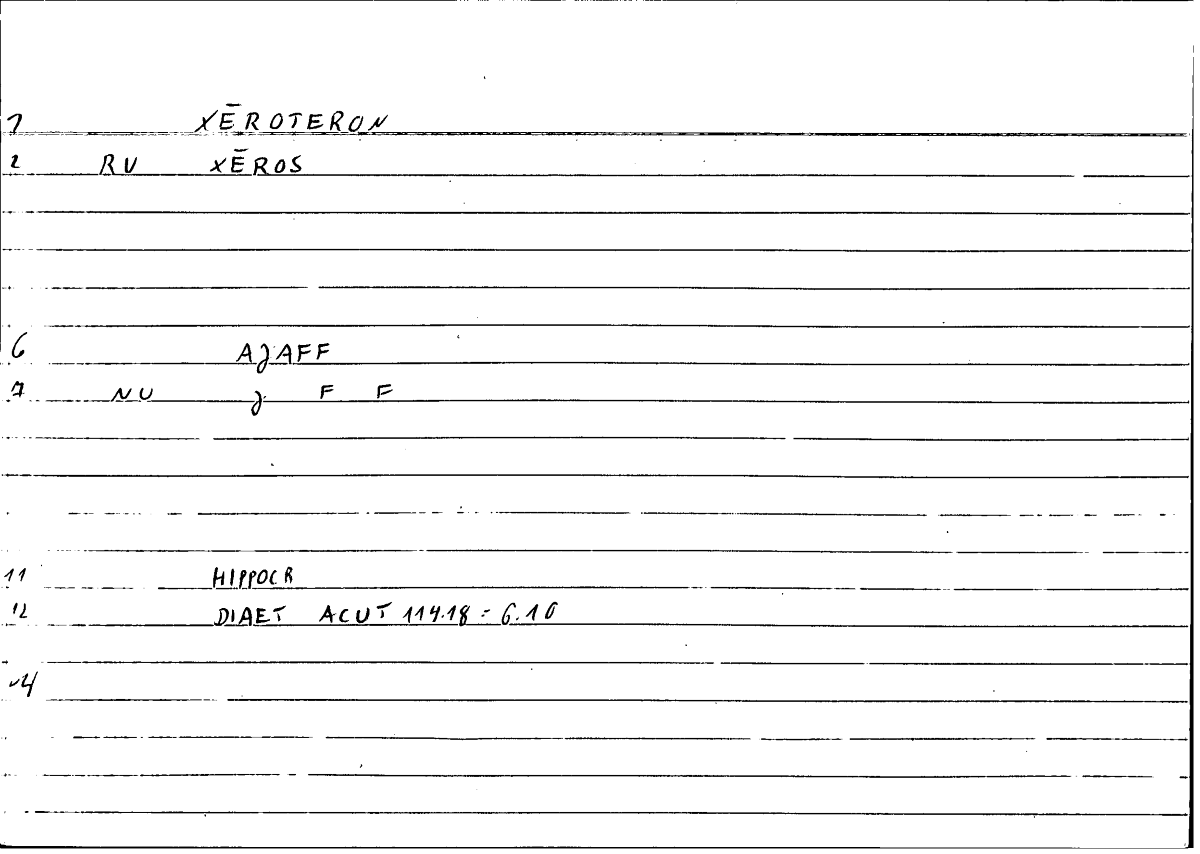 1 XĒROTERON
2 RU XĒROS
6 AJAFF
7 NU J F F
11 HIPPOCR
12 DIAET ACUT 114.18 = 6.10
14